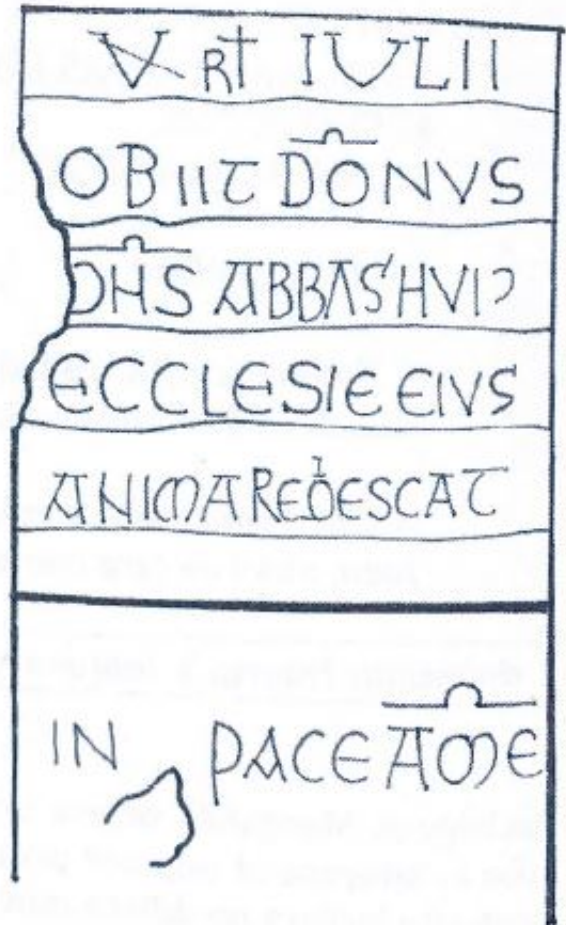 V RT IVLII
OBIIT DONVS
OHS ABBAS' HVIꝰ
ECCLESIE EIVS
ANIMA REQIESCAT
IN PACE AME